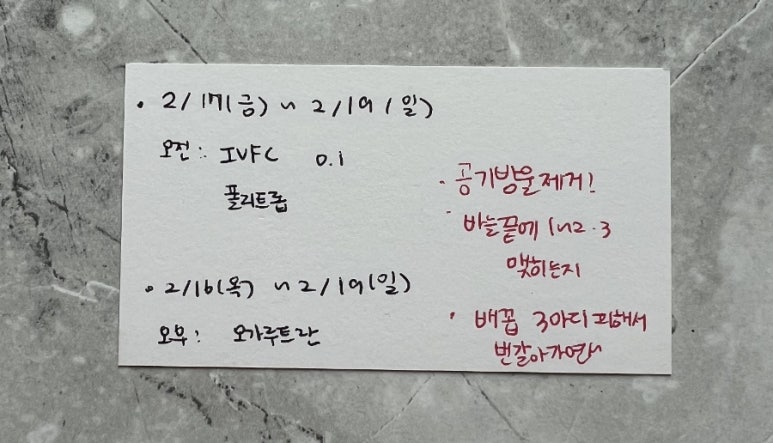 • 2/17(금) ~ 2/19(일)
오전: IVFC 0.1
폴리트롭
• 2/16(목) ~ 2/19(일)
오후: 오가루트란
· 공기방울제거!
· 바늘끝에 1~2·3
맺히는지
· 배꼽 3마디 피해서
번갈아가면~